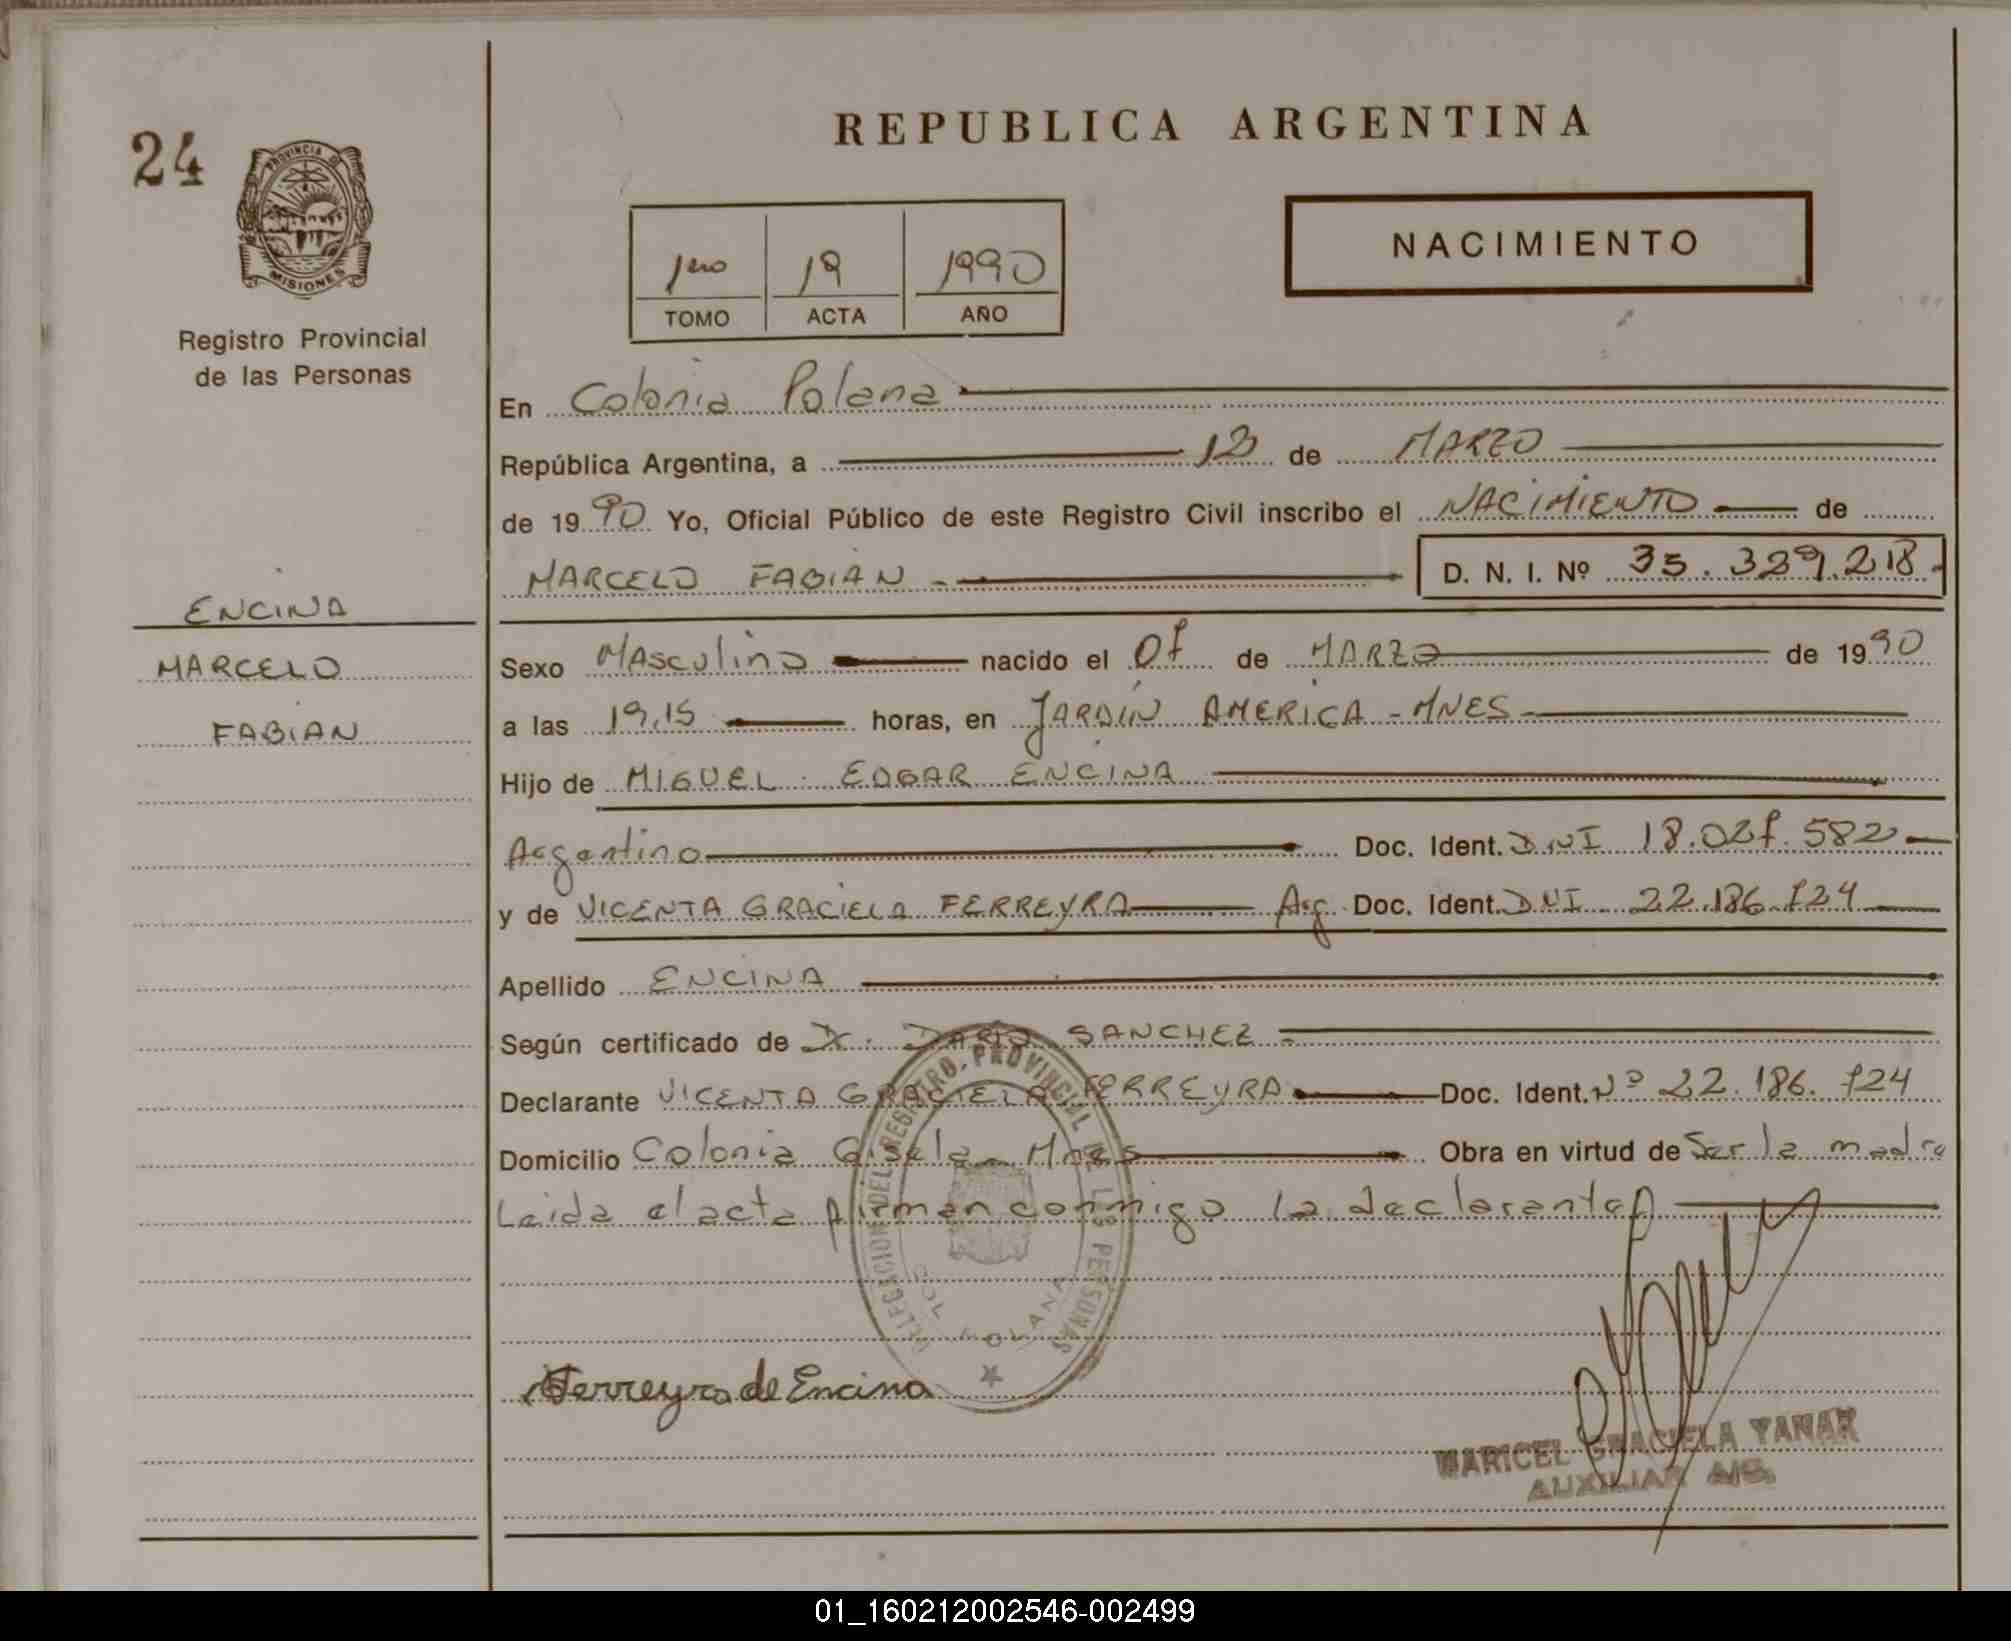 24
PROVINCIA DE
MISIONES
Registro Provincial
de las Personas
ENCINA
MARCELO
FABIAN
REPUBLICA ARGENTINA
1ero 19 1990
TOMO ACTA AÑO
NACIMIENTO
En Colonia Polana
República Argentina, a 13 de MARZO
de 1990 Yo, Oficial Público de este Registro Civil inscribo el NACIMIENTO de
MARCELO FABIAN - D. N. I. Nº 35.329.218.
Sexo MAsculino nacido el 07 de MARZO de 1990
a las 19,15 horas, en JARDIN AMERICA - MNES
Hijo de MIGUEL EDGAR ENCINA
Argentino Doc. Ident. DNI 18.027.582
y de VICENTA GRACIELA FERREYRA Arg. Doc. Ident. DNI 22.186.724
Apellido ENCINA
Según certificado de DARIO SANCHEZ
Declarante VICENTA GRACIELA FERREYRA Doc. Ident. Nº 22.186.724
Domicilio Colonia Gisela - Mnes Obra en virtud de Ser la madre
Leida el acta firman conmigo la declarante
DELEGACION DEL REGISTRO PROVINCIAL DE LAS PERSONAS
COL POLANA
Ferreyra de Encina
MARICEL GRACIELA YANAK
AUXILIAR
01_160212002546-002499